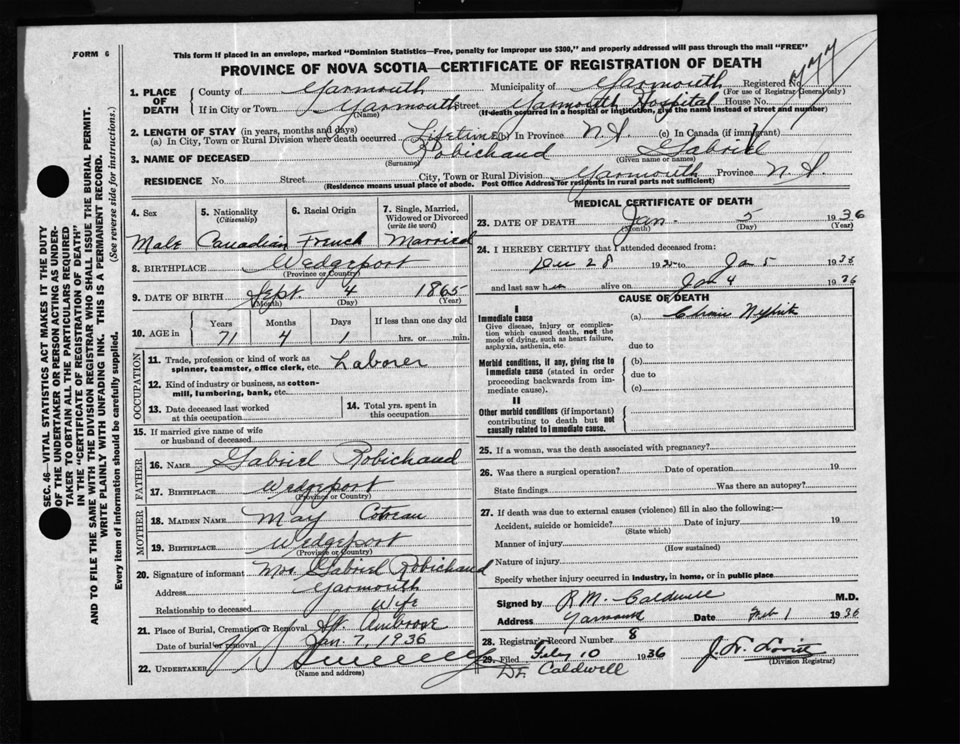 FORM 6
This form if placed in an envelope, marked "Dominion Statistics—Free, penalty for improper use $300," and properly addressed will pass through the mail "FREE"
PROVINCE OF NOVA SCOTIA—CERTIFICATE OF REGISTRATION OF DEATH
SEC. 46—VITAL STATISTICS ACT MAKES IT THE DUTY
OF THE UNDERTAKER OR PERSON ACTING AS UNDER-
TAKER TO OBTAIN ALL THE PARTICULARS REQUIRED
IN THE "CERTIFICATE OF REGISTRATION OF DEATH"
AND TO FILE THE SAME WITH THE DIVISION REGISTRAR WHO SHALL ISSUE THE BURIAL PERMIT.
WRITE PLAINLY WITH UNFADING INK. THIS IS A PERMANENT RECORD.
Every item of information should be carefully supplied. (See reverse side for instructions.)
1. PLACE OF DEATH
County of Yarmouth Municipality of Yarmouth Registered No.
(For use of Registrar General only)
If in City or Town Yarmouth Street Yarmouth Hospital House No.
(Name) (If death occurred in a hospital or institution, give the name instead of street and number)
2. LENGTH OF STAY (in years, months and days)
(a) In City, Town or Rural Division where death occurred Lifetime (b) In Province N.S. (c) In Canada (if immigrant)
3. NAME OF DECEASED Robichaud Gabriel
(Surname) (Given name or names)
RESIDENCE No. Street City, Town or Rural Division Yarmouth Province N.S.
(Residence means usual place of abode. Post Office Address for residents in rural parts not sufficient)
4. Sex
Male
5. Nationality
(Citizenship)
Canadian
6. Racial Origin
French
7. Single, Married,
Widowed or Divorced
(write the word)
Married
8. BIRTHPLACE Wedgeport
(Province or Country)
9. DATE OF BIRTH Sept. 4 1865
(Month) (Day) (Year)
10. AGE in
Years Months Days If less than one day old
71 4 1 hrs. or min.
OCCUPATION
11. Trade, profession or kind of work as
spinner, teamster, office clerk, etc. Laborer
12. Kind of industry or business, as cotton-
mill, lumbering, bank, etc.
13. Date deceased last worked
at this occupation
14. Total yrs. spent in
this occupation
15. If married give name of wife
or husband of deceased
FATHER
16. NAME Gabriel Robichaud
17. BIRTHPLACE Wedgeport
(Province or Country)
MOTHER
18. MAIDEN NAME May
19. BIRTHPLACE Wedgeport
(Province or Country)
20. Signature of informant Mrs. Gabriel Robichaud
Address Yarmouth
Relationship to deceased Wife
21. Place of Burial, Cremation or Removal St. Ambrose
Date of burial or removal Jan. 7, 1936
22. UNDERTAKER
(Name and address)
MEDICAL CERTIFICATE OF DEATH
23. DATE OF DEATH Jan. 5 1936
(Month) (Day) (Year)
24. I HEREBY CERTIFY that I attended deceased from:
Dec 28 19 to Jan 5 1936
and last saw him alive on Jan 4 1936
CAUSE OF DEATH
I
Immediate cause
Give disease, injury or complica-
tion which caused death, not the
mode of dying, such as heart failure,
asphyxia, asthenia, etc.
(a)
due to
Morbid conditions, if any, giving rise to
immediate cause (stated in order
proceeding backwards from im-
mediate cause).
(b)
due to
(c)
II
Other morbid conditions (if important)
contributing to death but not
causally related to immediate cause.
25. If a woman, was the death associated with pregnancy?
26. Was there a surgical operation? Date of operation 19
State findings Was there an autopsy?
27. If death was due to external causes (violence) fill in also the following:—
Accident, suicide or homicide? Date of injury 19
(State which)
Manner of injury
(How sustained)
Nature of injury
Specify whether injury occurred in industry, in home, or in public place
Signed by R.M. Caldwell M.D.
Address Yarmouth Date Feb 1 1936
28. Registrar's Record Number 8
29. Filed Feby 10 1936
(Division Registrar)
Dr. Caldwell